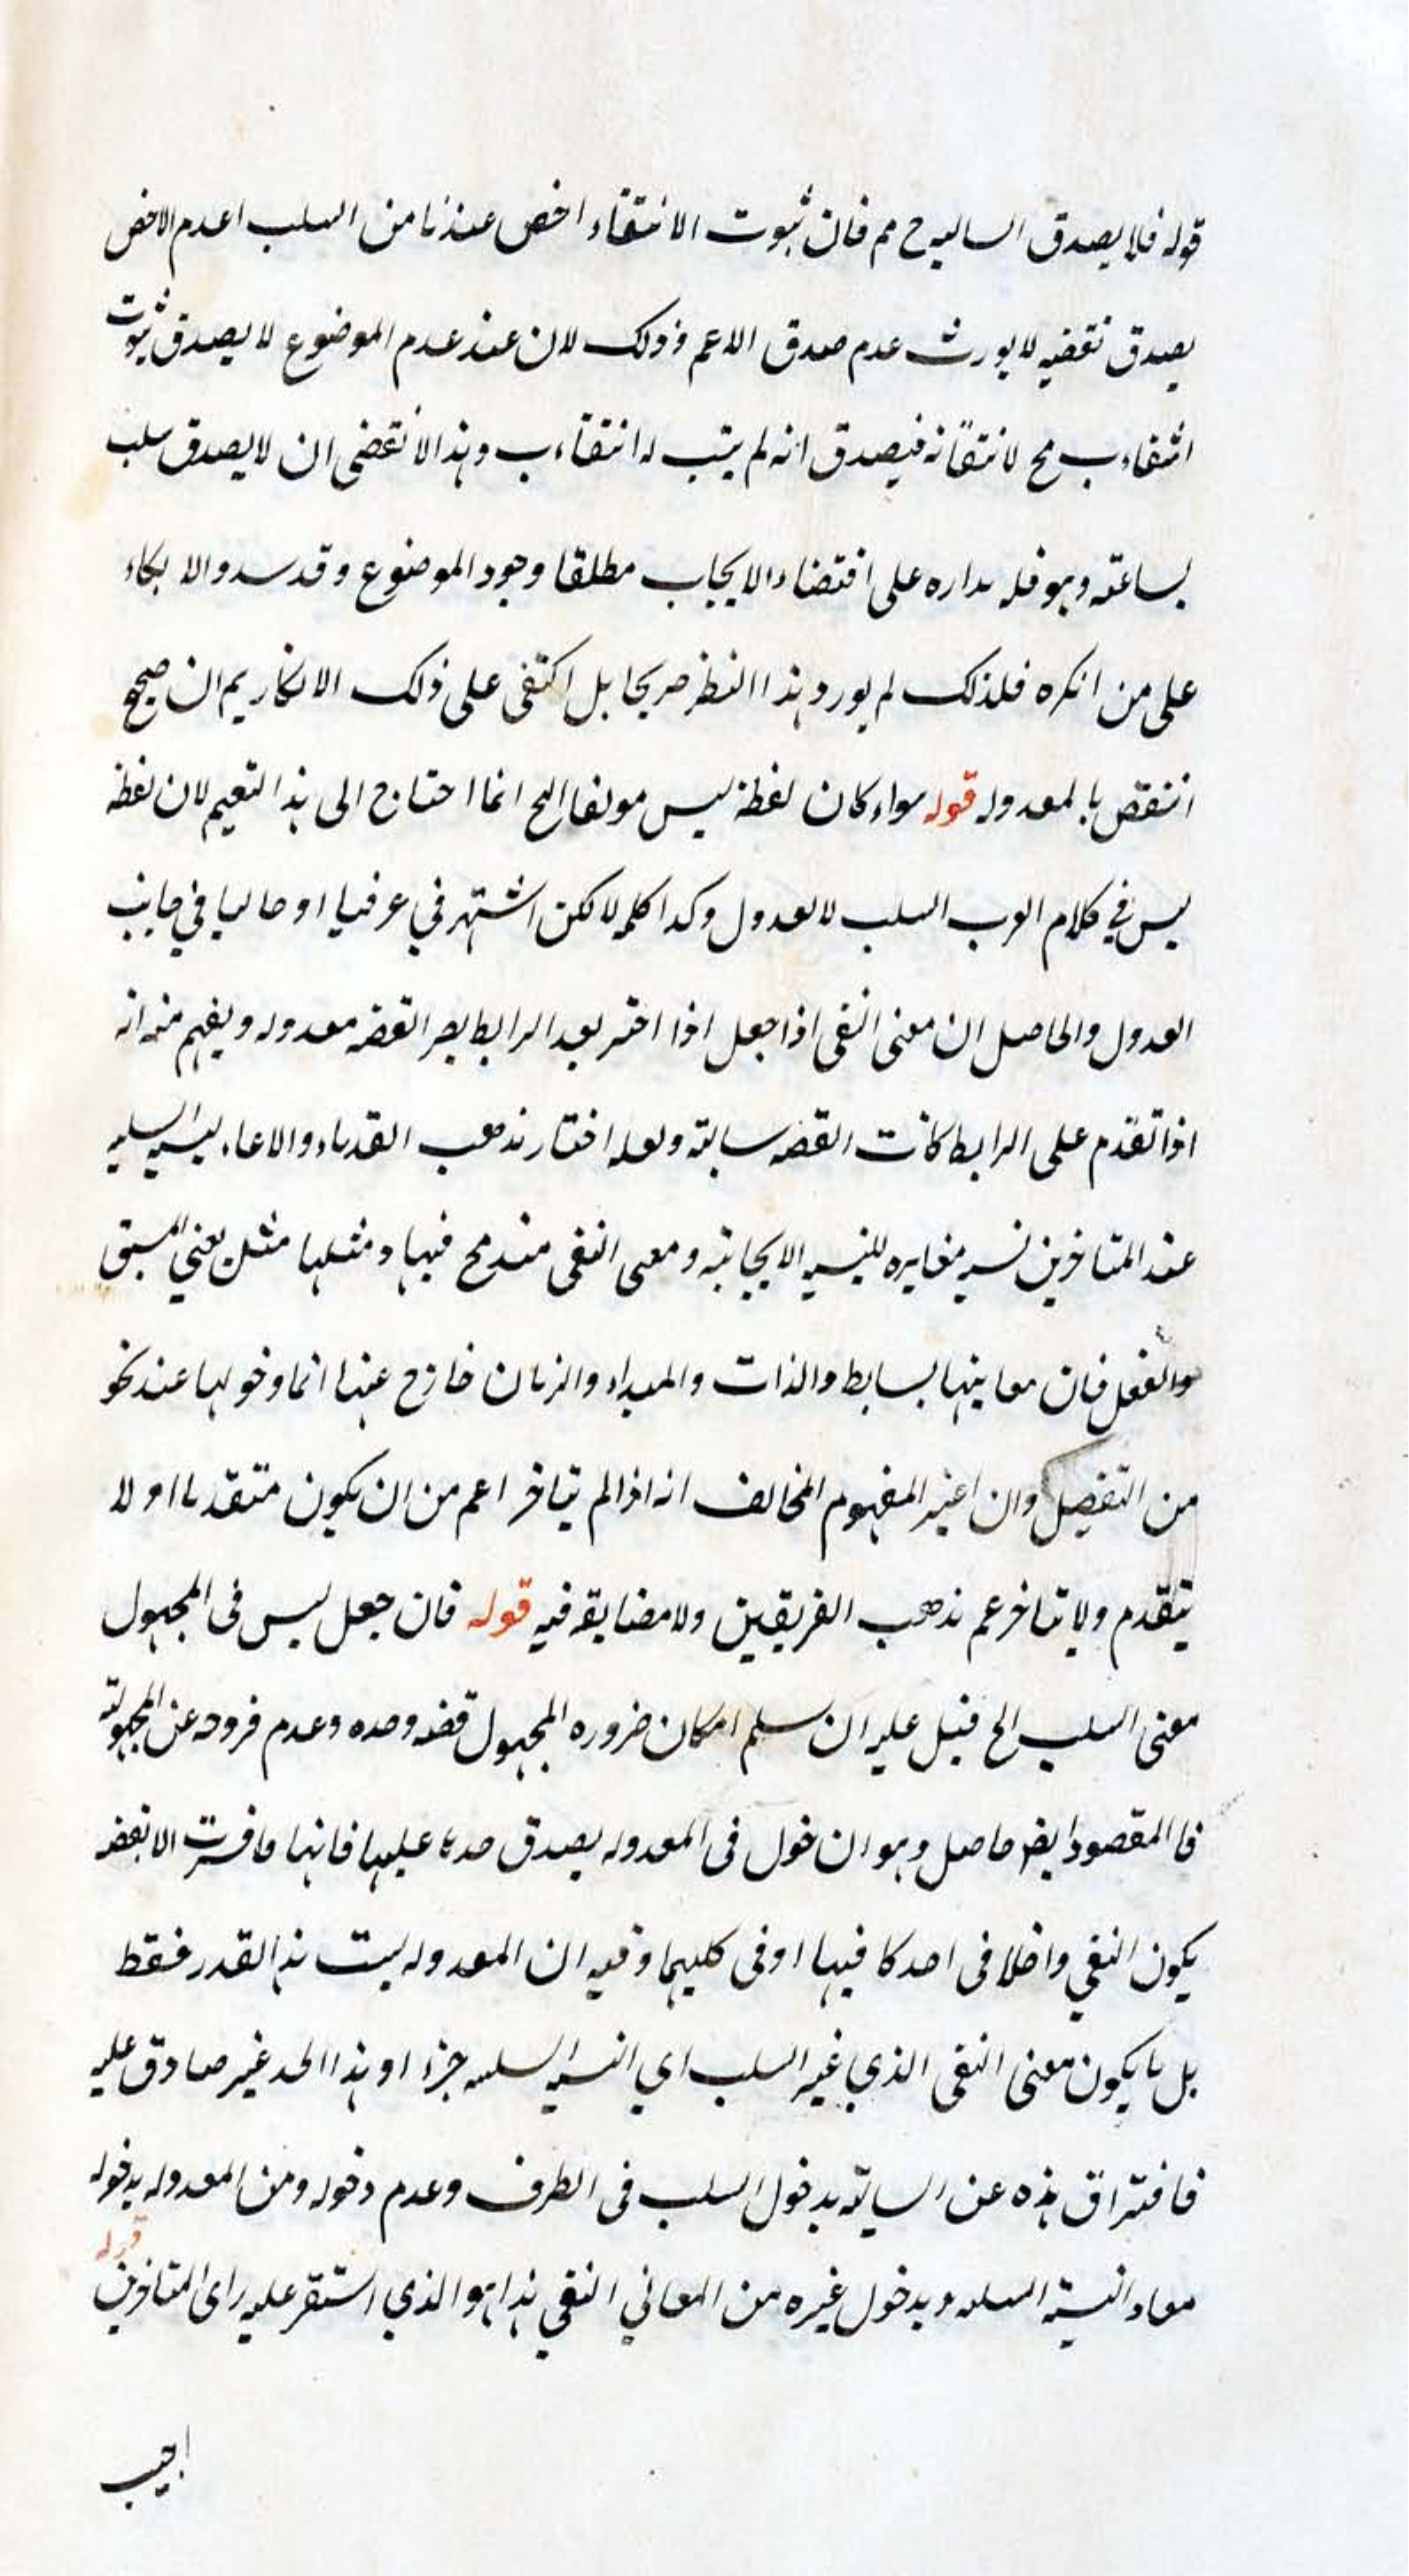 قوله فلا يصدق السالبه ح مم فان ثبوت الانتفاء اخص عندنا من السلب اعدم الاخص
يصدق نقضيه لا يورث عدم صدق الاعم وذلك لان عند عدم الموضوع لا يصدق ثبوت
انتفاء ب مح لانتفائه فيصدق انه لم يثبت له انتفاء ب وهذا لا نقتضى ان لا يصدق سلب
بساعته وهو فله مداره على اقتضاء الايجاب مطلقا وجود الموضوع وقد سدد الابكاء
على من انكره فلذلك لم يورد هذا النظر صريحا بل اكتفى على ذلك الانكار يم ان صحيح
انتقض بالمعدوله قوله سواء كان لفظة ليس مولفا الخ انما احتاج الى هذا التعيم لان لفظة
ليس في كلام العرب السلب لا العدول وكذا كلمه لا لكن اشتهر في عرفيا او حاليا في جانب
العدول والحاصل ان معنى النفى اذا جعل اذا اخر بعد الرابط يصر القضه معدوله ويفهم منه انه
اذا تقدم على الرابط كانت القضه سالبة ولعله اختار مذهب القدماء والا عاء ليسه السلبيه
عند المتاخرين نسبه مغايره للنسبه الايجابية ومعنى النفى مندمج فيها ومثلها مثل يعني المشتق
والفعل فان معاينها بسايط والذات والمبداء والزمان خارج عنها انما دخولها عند نحو
من التفصيل وان اعتبر المفهوم المخالف انه اذا لم يتاخر اعم من ان يكون متقدما او لا
يتقدم ولا يتاخر عم مذهب الفريقين ولا مضايقه فيه قوله فان جعل ليس فى المجهول
معنى السلب الخ قيل عليه ان سلم امكان ضروره المجهول قضه وحده وعدم خروجه عن المجهولية
فا المقصود ايضا حاصل وهو ان خول فى المعدوله يصدق حدها عليها فانها ما فسرت الا بقضه
يكون النفي داخلا فى احدكا فيها او فى كليهما وفيه ان المعدوله ليست هذا القدر فقط
بل ما يكون معنى النفى الذي غير السلب اي النسبه السلبيه جزء او هذا الحد غير صادق عليه
فافتراق هذه عن السالبة بدخول السلب فى الطرف وعدم دخوله ومن المعدوله بدخوله
معاد النسبة السلبه وبدخول غيره من المعاني النفي هذا هو الذي استقر عليه راى المتاخرين قوله
اجيب